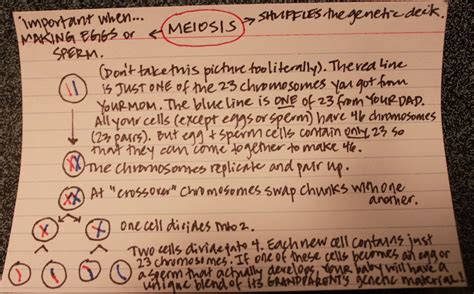 important when...
MAKING EGGS or
SPERM.
MEIOSIS
SHUFFLES the genetic deck.
(Don't take this picture too literally). The red line
is JUST ONE of the 23 chromosomes you got from
YOUR MOM. The blue line is ONE of 23 from YOUR DAD.
All your cells (except eggs or sperm) have 46 chromosomes
(23 pairs). But egg + sperm cells contain only 23 so
that they can come together to make 46.
The chromosomes replicate and pair up.
At "crossover" chromosomes swap chunks with one
another.
One cell divides into 2.
Two cells divide into 4. Each new cell contains just
23 chromosomes. If one of these cells becomes an egg or
a sperm that actually develops, your baby will have a
unique blend of its GRANDPARENT'S genetic material!